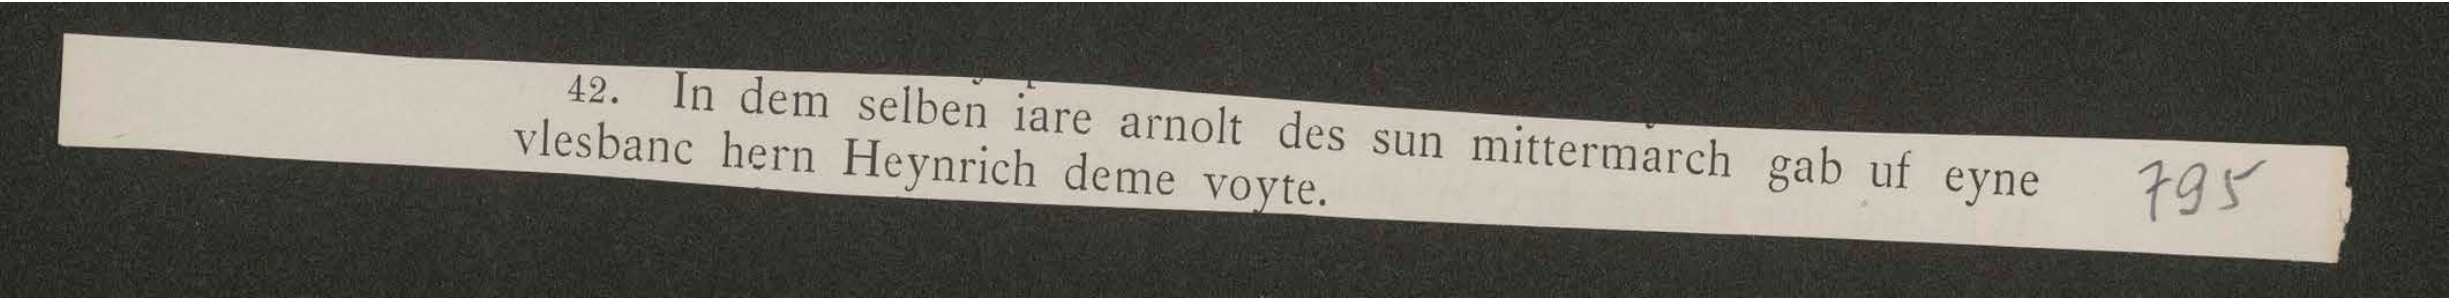 42. In dem selben iare arnolt des sun mittermarch gab uf eyne 795
vlesbanc hern Heynrich deme voyte.